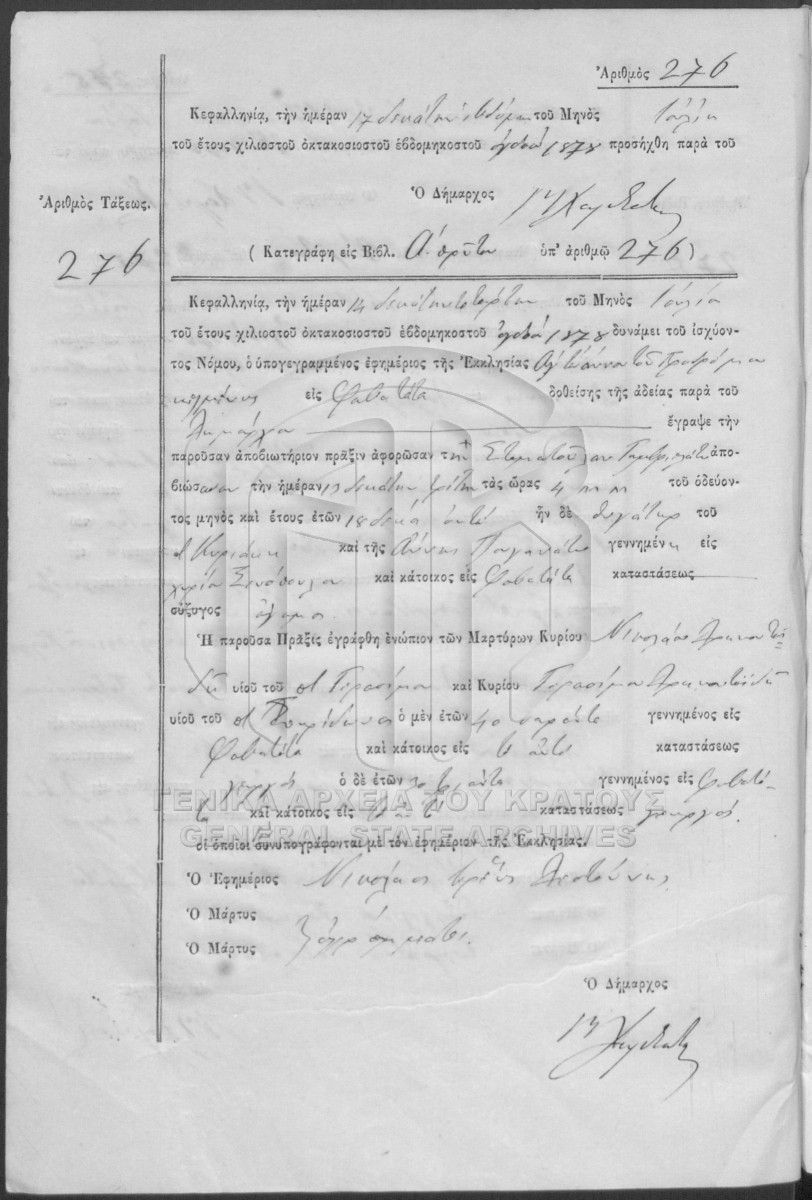 Ἀριθμὸς 276
Κεφαλληνίᾳ, τὴν ἡμέραν 17 δεκάτην ἑβδόμην τοῦ Μηνὸς Ἰουλίου
τοῦ ἔτους χιλιοστοῦ ὀκτακοσιοστοῦ ἑβδομηκοστοῦ ὀγδόου 1878 προσήχθη παρὰ τοῦ
Ὁ Δήμαρχος
Ἀριθμὸς Τάξεως.
276
( Κατεγράφη εἰς Βιβλ. Α. πρῶτον ὑπ' ἀριθμῷ 276 )
Κεφαλληνίᾳ, τὴν ἡμέραν 14 δεκάτην τετάρτην τοῦ Μηνὸς Ἰουλίου
τοῦ ἔτους χιλιοστοῦ ὀκτακοσιοστοῦ ἑβδομηκοστοῦ ὀγδόου 1878 δυνάμει τοῦ ἰσχύον-
τος Νόμου, ὁ ὑπογεγραμμένος ἐφημέριος τῆς Ἐκκλησίας Ἁγ. Ἰωάννου τοῦ Προδρόμου
κειμένης εἰς Φαβατάτα δοθείσης τῆς ἀδείας παρὰ τοῦ
Δημάρχου ἔγραψε τὴν
παροῦσαν ἀποβιωτήριον πρᾶξιν ἀφορῶσαν τὴν Σταματούλαν ἀπο-
βιώσασαν τὴν ἡμέραν 13 δεκάτην τρίτην τὰς ὥρας 4 π μ τοῦ ὁδεύον-
τος μηνὸς καὶ ἔτους ἐτῶν 18 δέκα ὀκτώ ἦν δὲ θυγάτηρ τοῦ
π Κυριάκου καὶ τῆς γεννημένη εἰς
χωρίον Ξενόπουλο καὶ κάτοικος εἰς Φαβατάτα καταστάσεως
σύζυγος ἄγαμος.
Ἡ παροῦσα Πρᾶξις ἐγράφθη ἐνώπιον τῶν Μαρτύρων Κυρίου Νικολάου
υἱοῦ τοῦ π Γερασίμου καὶ Κυρίου Γερασίμου
υἱοῦ τοῦ π Σπυρίδωνος ὁ μὲν ἐτῶν 40 σαράντα γεννημένος εἰς
Φαβατάτα καὶ κάτοικος εἰς καταστάσεως
γεωργός ὁ δὲ ἐτῶν 30 τριάντα γεννημένος εἰς Φαβατά-
τα καὶ κάτοικος εἰς καταστάσεως γεωργός.
οἱ ὁποῖοι συνυπογράφονται μὲ τὸν ἐφημέριον τῆς Ἐκκλησίας.
Ὁ Ἐφημέριος Νικόλαος ἱερεὺς
Ὁ Μάρτυς
Ὁ Μάρτυς
Ὁ Δήμαρχος
ΓΕΝΙΚΑ ΑΡΧΕΙΑ ΤΟΥ ΚΡΑΤΟΥΣ
GENERAL STATE ARCHIVES